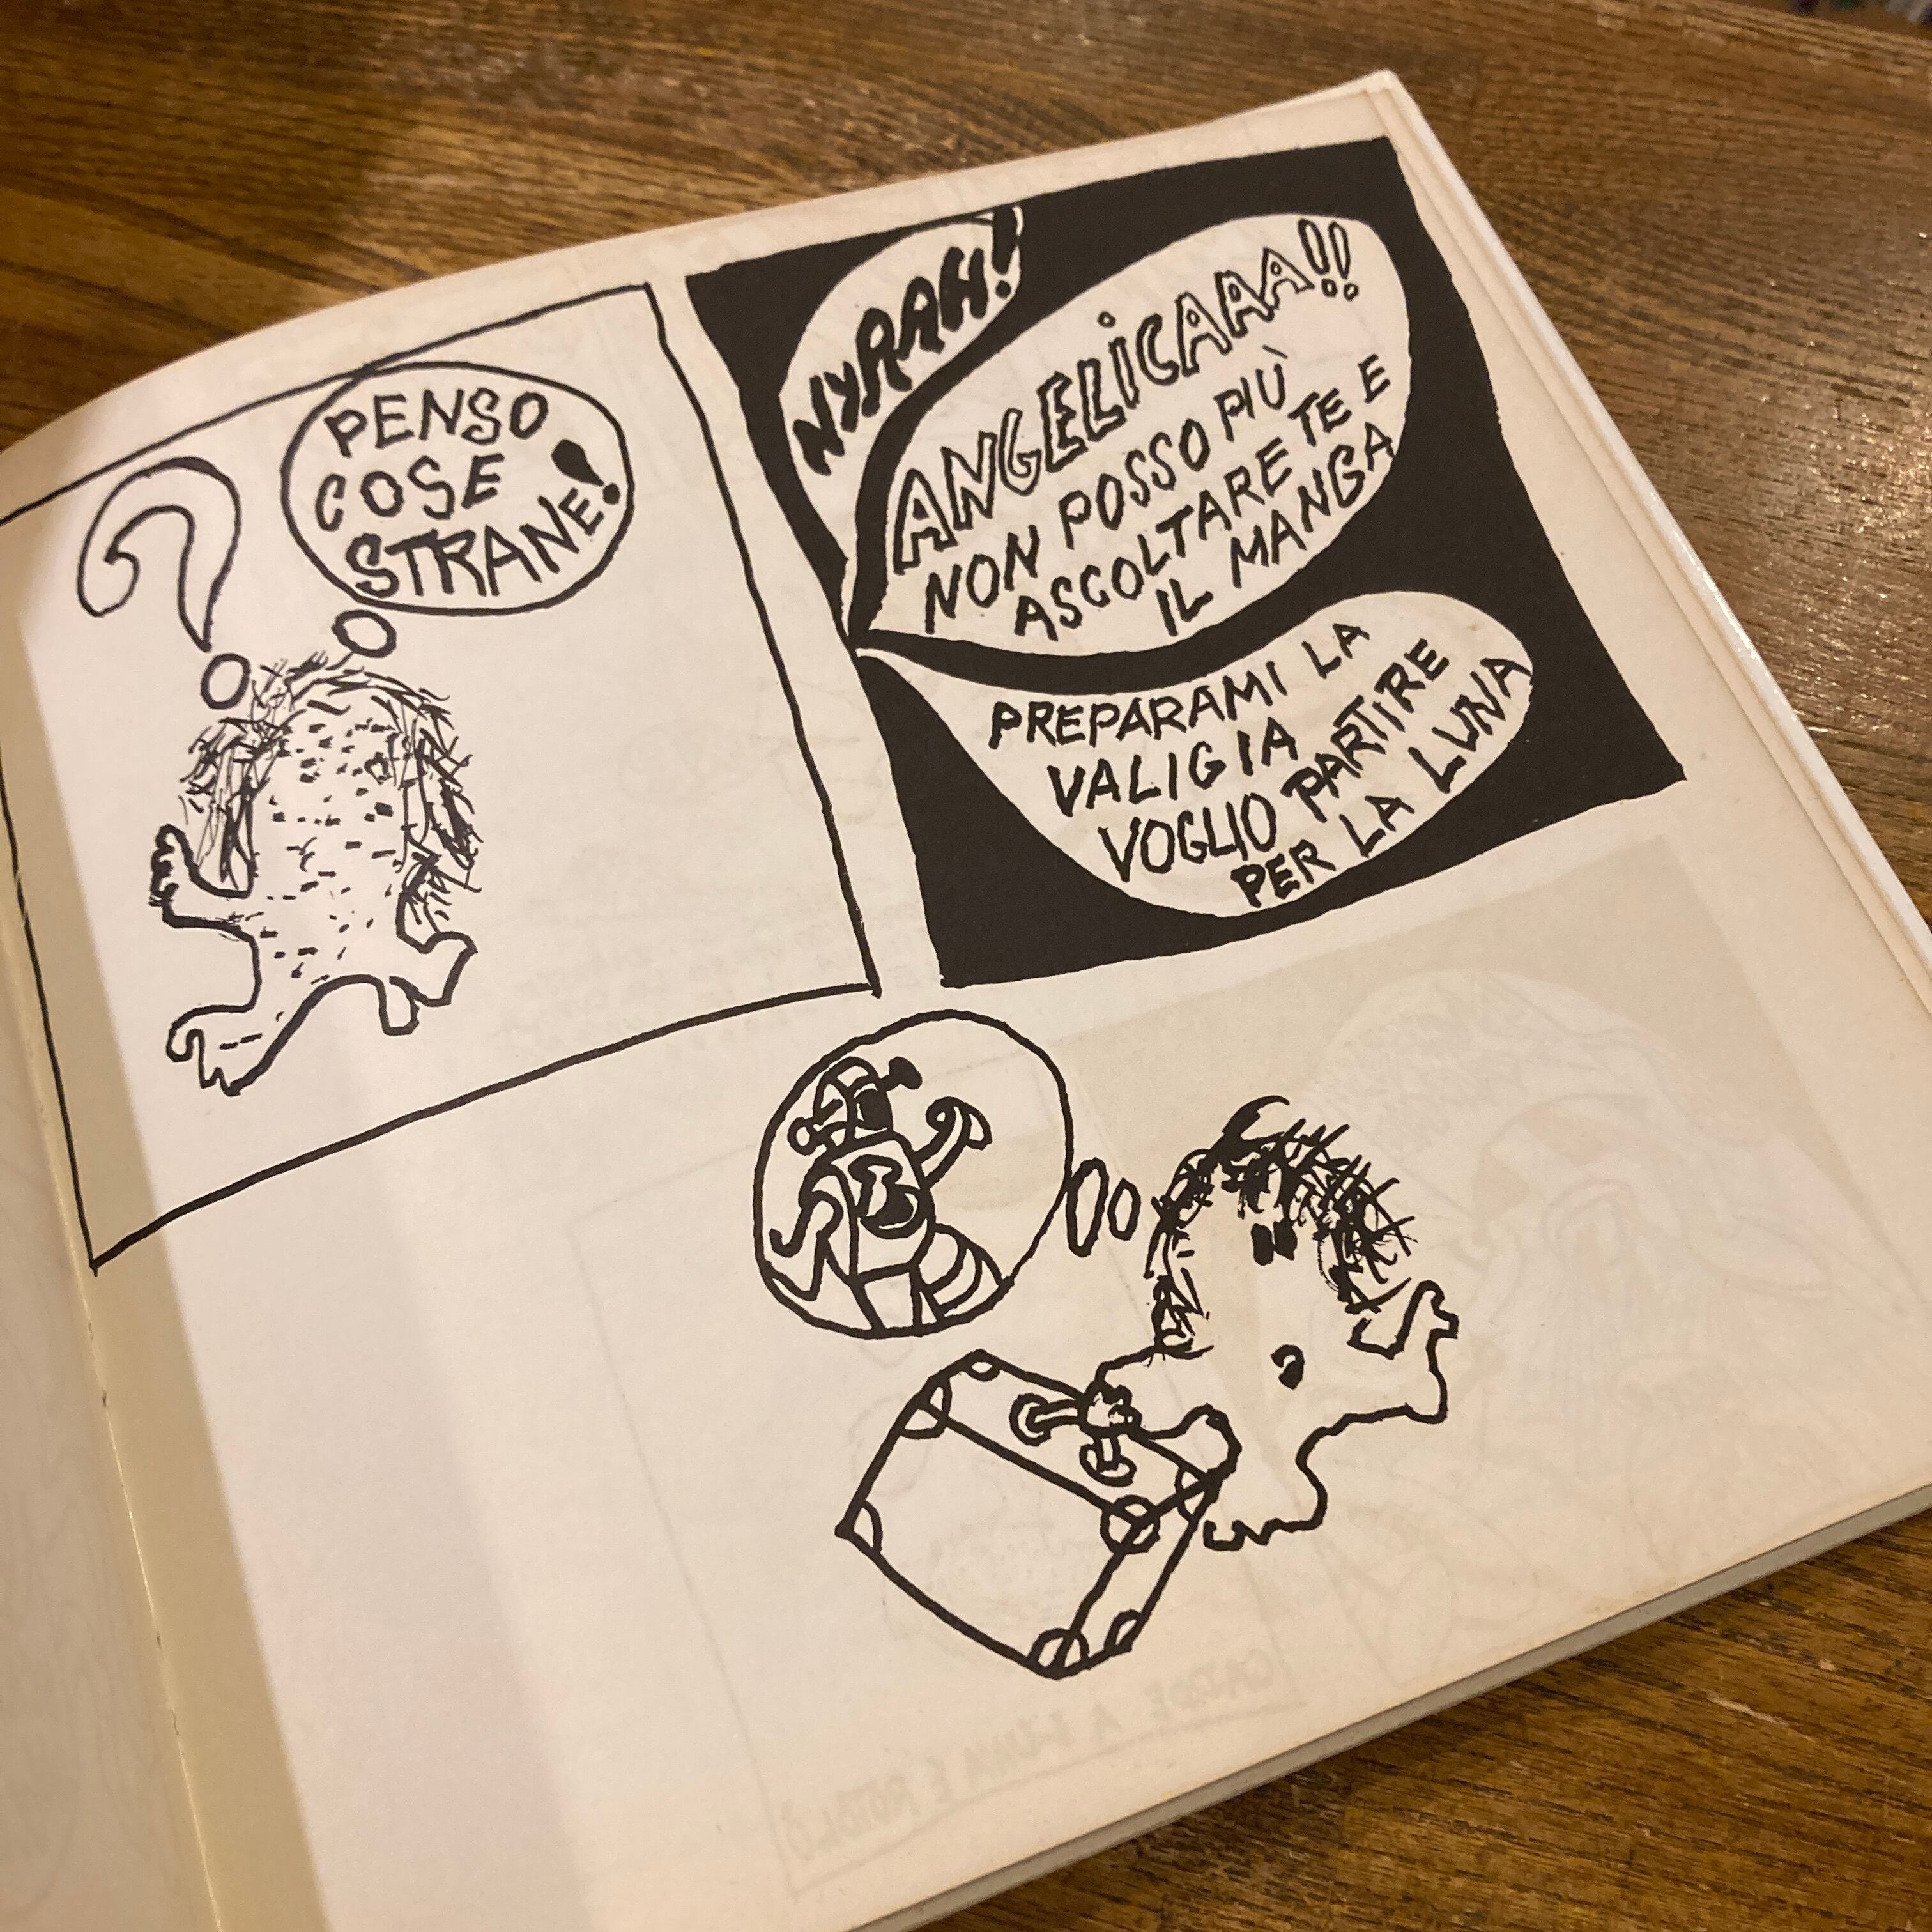 ?
PENSO
COSE
STRANE!
NYAAH!
ANGELiCAAA!!
NON POSSO PIÙ
ASCOLTARE TE E
IL MANGA
PREPARAMI LA
VALIGIA
VOGLIO PARTIRE
PER LA LUNA